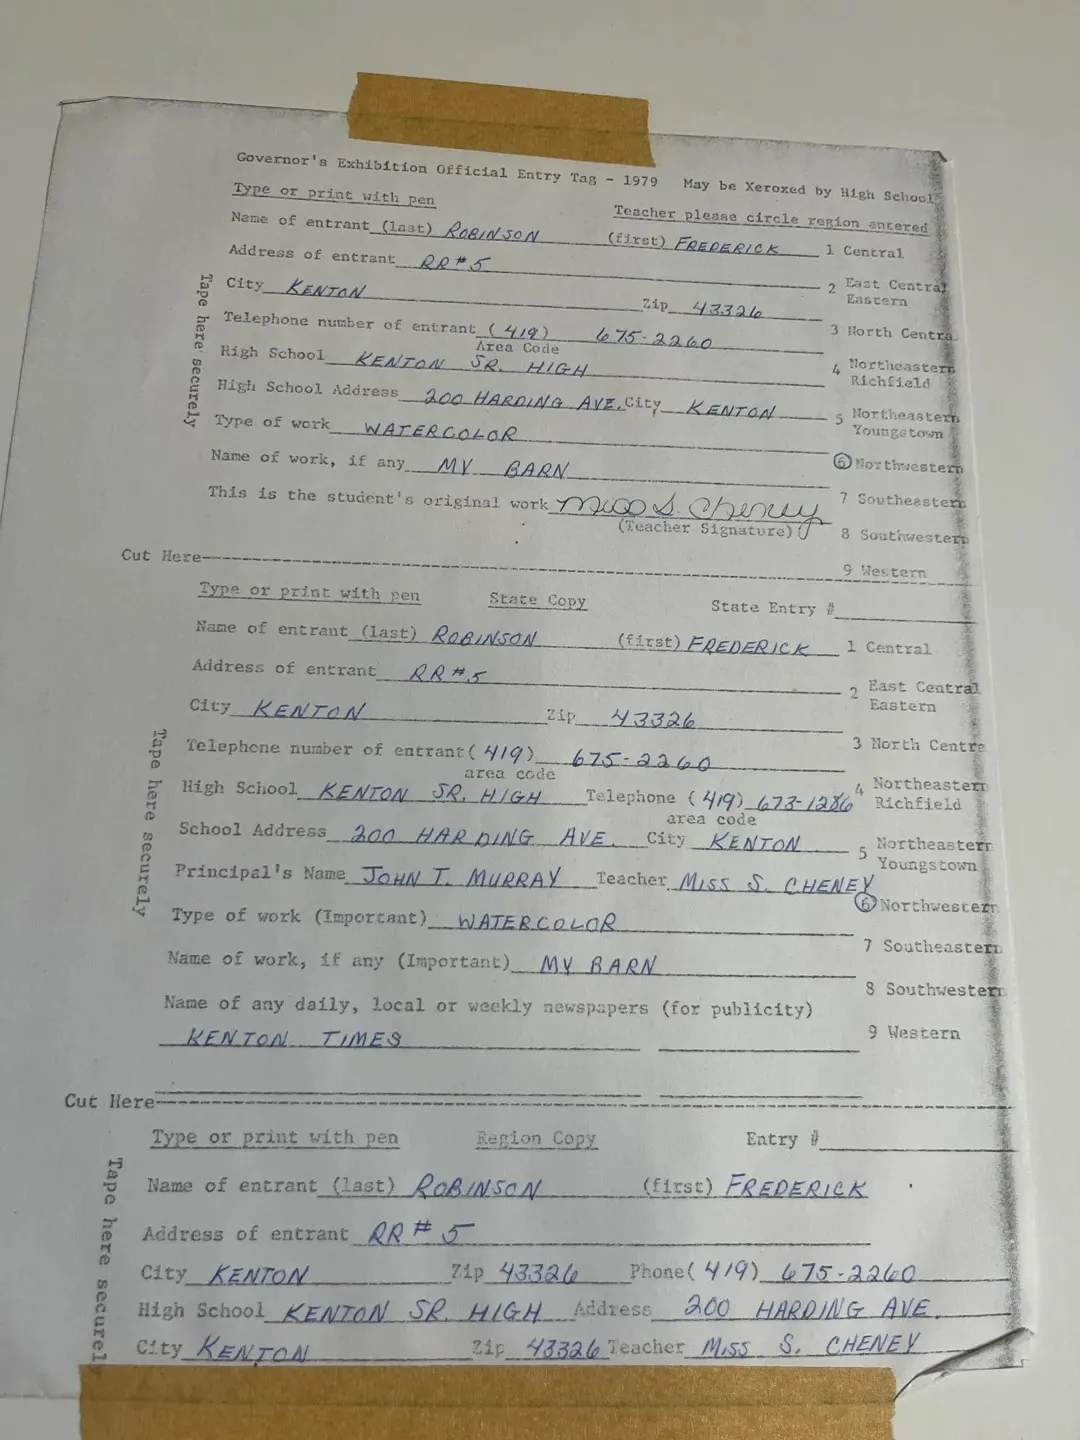 Governor's Exhibition Official Entry Tag - 1979 May be Xeroxed by High School
Type or print with pen Teacher please circle region entered
Name of entrant (last) ROBINSON (first) FREDERICK 1 Central
Address of entrant RR#5 2 East Central Eastern
City KENTON Zip 43326 3 North Centra
Telephone number of entrant (419) 675-2260
Area Code
High School KENTON SR. HIGH 4 Northeastern Richfield
High School Address 200 HARDING AVE. City KENTON 5 Northeastern Youngstown
Type of work WATERCOLOR
Name of work, if any MY BARN 6 Northwestern
This is the student's original work Miss S. Cheney 7 Southeastern
(Teacher Signature) 8 Southwestern
Tape here securely
Cut Here 9 Western
Type or print with pen State Copy State Entry #
Name of entrant (last) ROBINSON (first) FREDERICK 1 Central
Address of entrant RR#5 2 East Central Eastern
City KENTON Zip 43326
Telephone number of entrant (419) 675-2260 3 North Centra
area code
High School KENTON SR. HIGH Telephone (419) 673-1286 4 Northeastern Richfield
area code
School Address 200 HARDING AVE. City KENTON 5 Northeastern Youngstown
Principal's Name JOHN T. MURRAY Teacher MISS S. CHENEY
Type of work (Important) WATERCOLOR 6 Northwestern
Name of work, if any (Important) MY BARN 7 Southeastern
Name of any daily, local or weekly newspapers (for publicity) 8 Southwestern
KENTON TIMES 9 Western
Tape here securely
Cut Here
Type or print with pen Region Copy Entry #
Name of entrant (last) ROBINSON (first) FREDERICK
Address of entrant RR# 5
City KENTON Zip 43326 Phone (419) 675-2260
High School KENTON SR. HIGH Address 200 HARDING AVE.
City KENTON Zip 43326 Teacher MISS S. CHENEY
Tape here securel